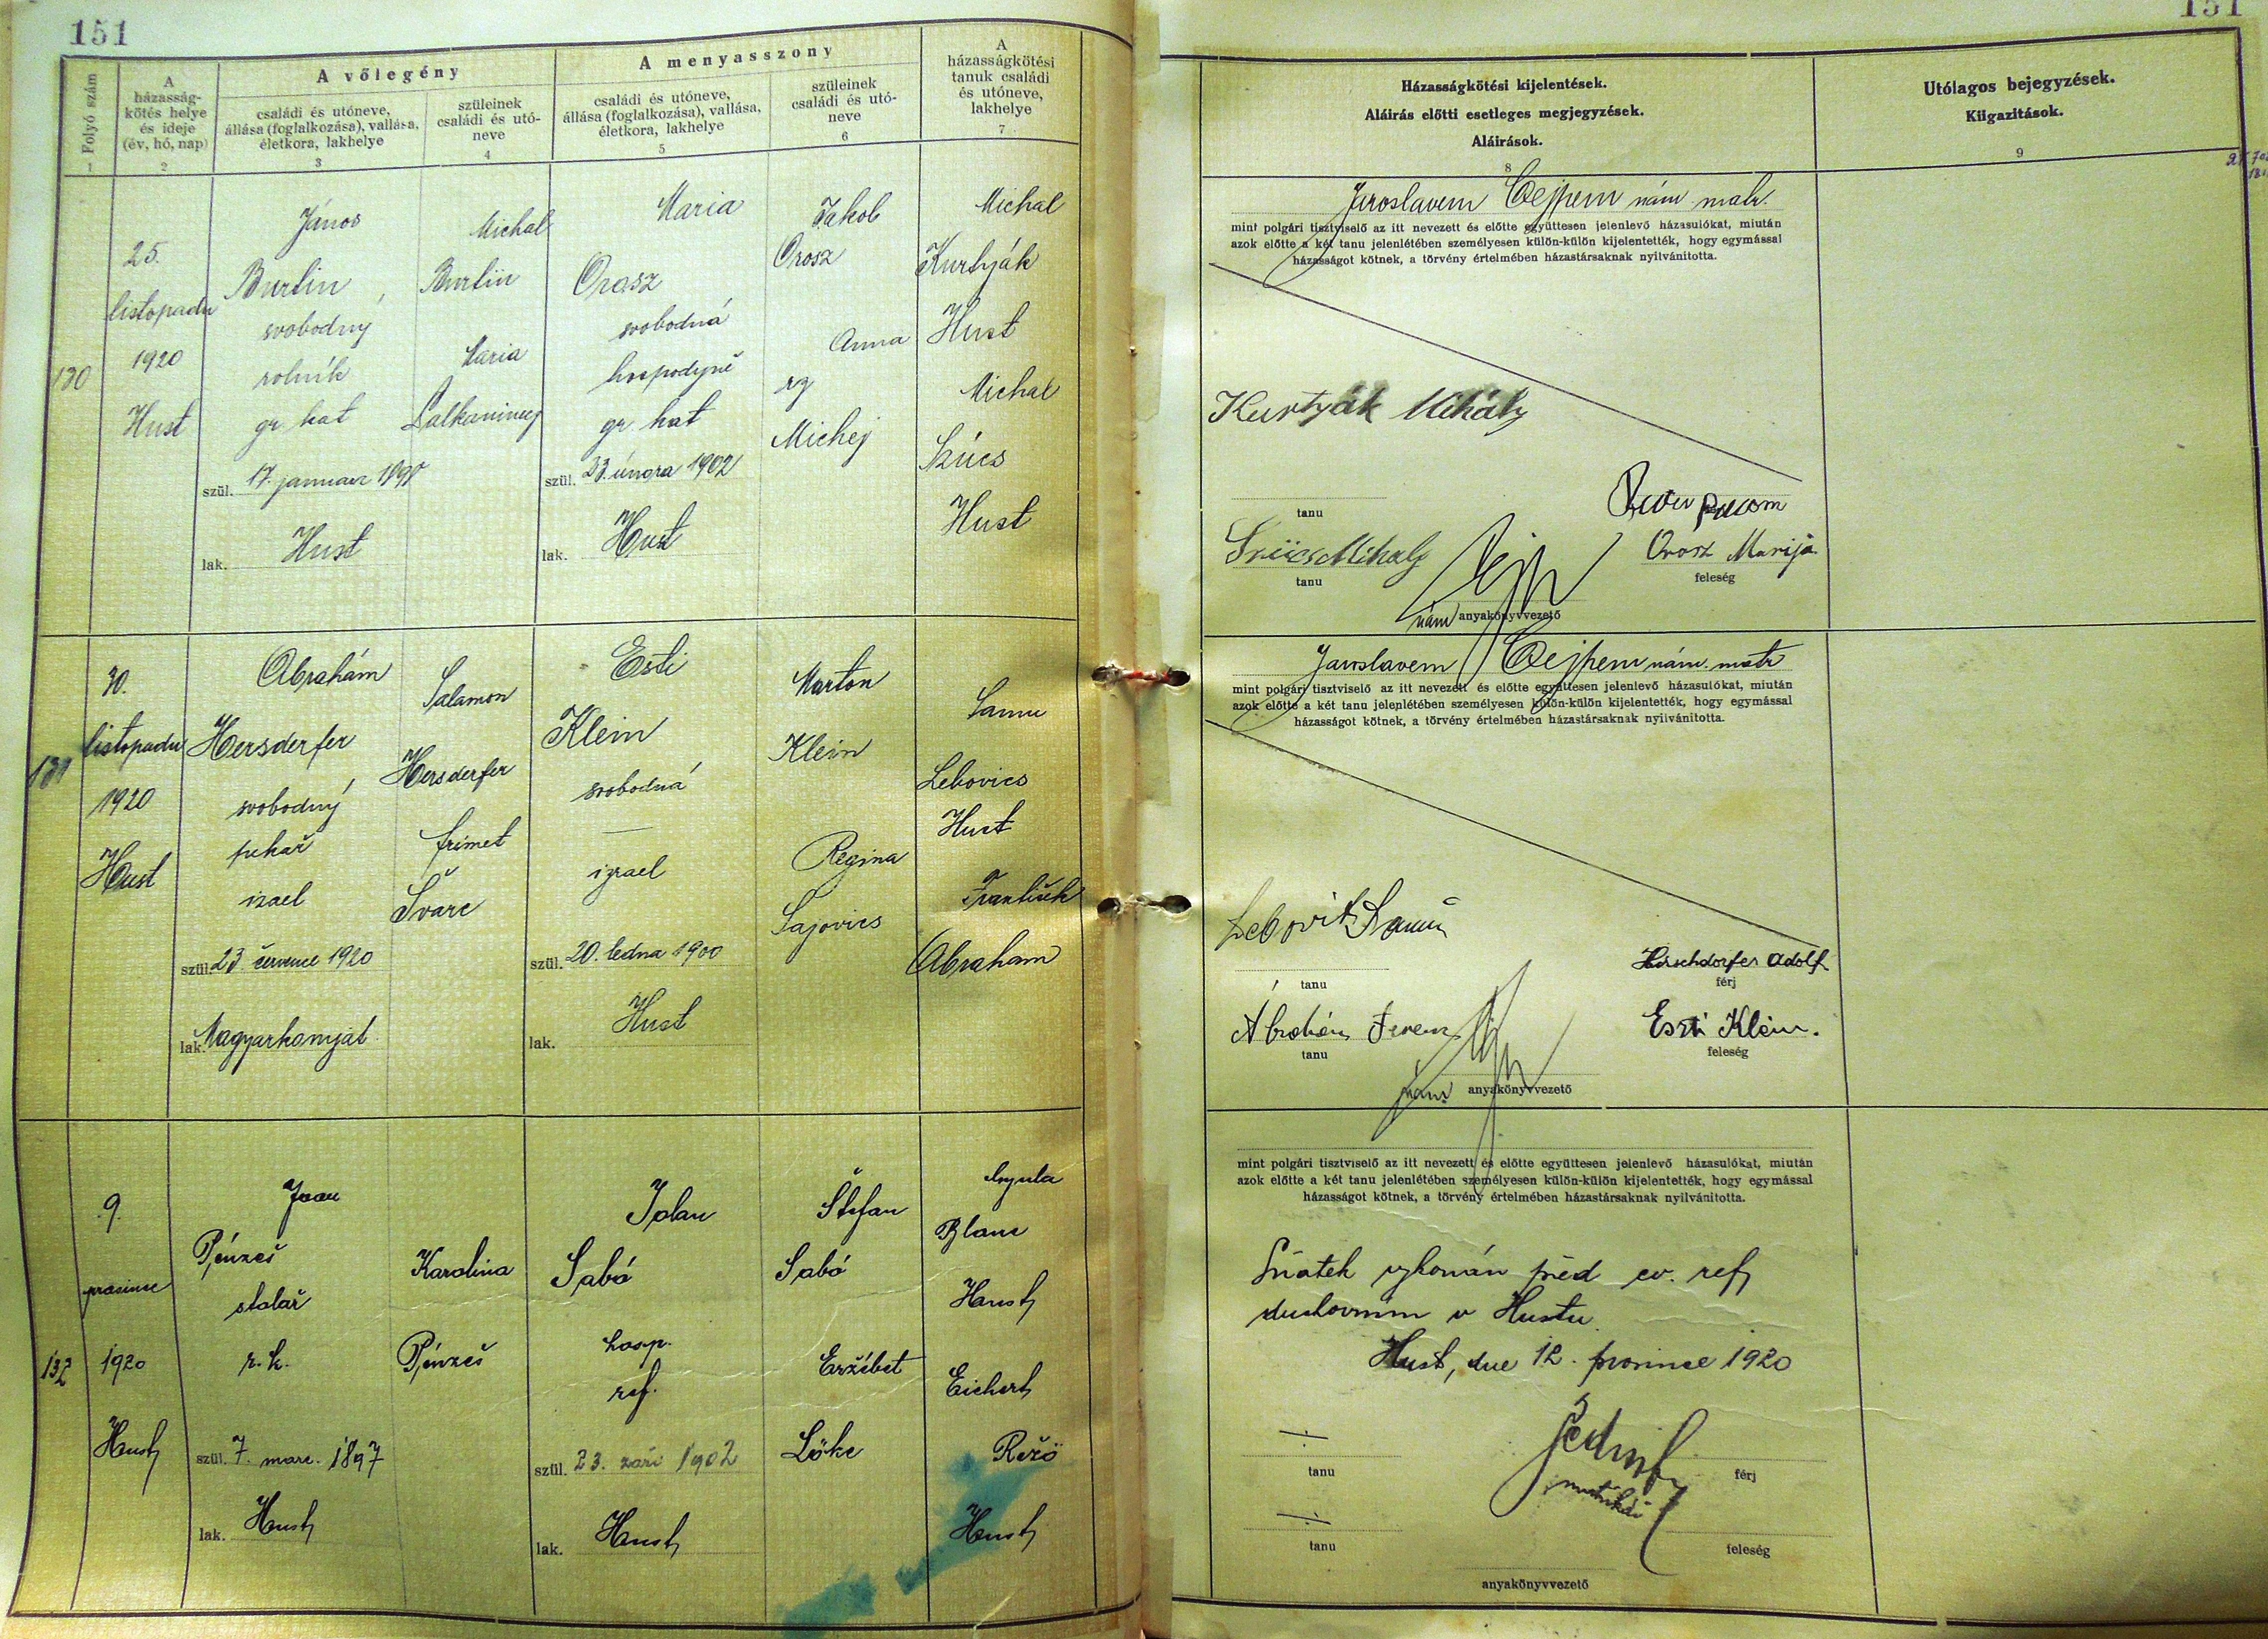 151
151
Folyó szám
A házasság-
kötés helye
és ideje
(év, hó, nap)
A vőlegény
családi és utóneve,
állása (foglalkozása), vallása,
életkora, lakhelye
szüleinek
családi és utó-
neve
A menyasszony
családi és utóneve,
állása (foglalkozása), vallása,
életkora, lakhelye
szüleinek
családi és utó-
neve
A
házasságkötési
tanuk családi
és utóneve,
lakhelye
1 2 3 4 5 6 7
Házasságkötési kijelentések.
Aláirás előtti esetleges megjegyzések.
Aláirások.
8
Utólagos bejegyzések.
Kiigazitások.
9
130
25.
listopadu
1920
Hust
János
Burlin
svobodný
rolník
gr. kat
szül. 17. januar
lak. Hust
Michal
Burlin
Maria
Maria
Orosz
svobodná
hospodyně
gr. kat
szül. 23. února 1902
lak. Hust
Jakob
Orosz
Anna
Michej
Michal
Kurtyák
Hust
Michal
Szücs
Hust
Jaroslavem Cejpem nám. matr.
mint polgári tisztviselő az itt nevezett és előtte együttesen jelenlevő házasulókat, miután
azok előtte a két tanu jelenlétében személyesen külön-külön kijelentették, hogy egymással
házasságot kötnek, a törvény értelmében házastársaknak nyilvánitotta.
Kurtyák Mihály
tanu
Szücs Mihaly
tanu
Orosz Marija
feleség
nám anyakönyvvezető
131
30.
listopadu
1920
Hust
Abrahám
Hersderfer
svobodný
pekař
izael
szül. 23. července 1920
lak. Magyarkomját
Salamon
Hersderfer
frimet
Švarc
Esti
Klein
svobodná
—
izrael
szül. 20. ledna 1900
lak. Hust
Marton
Klein
Regina
Sajovics
Samu
Lebovics
Hust
František
Abraham
Jaroslavem Cejpem nám. matr
mint polgári tisztviselő az itt nevezett és előtte együttesen jelenlevő házasulókat, miután
azok előtte a két tanu jelenlétében személyesen külön-külön kijelentették, hogy egymással
házasságot kötnek, a törvény értelmében házastársaknak nyilvánitotta.
Lebovits Samu
tanu
Hirschdorfer Adolf
férj
Ábrahám Ferenc
tanu
Eszti Klein.
feleség
nám anyakönyvvezető
132
9.
prosince
1920
Hust
Joan
Pénzeš
stolař
r. k.
szül. 7. marc. 1897
lak. Hust
Karolina
Pénzeš
Jolan
Sabó
hosp.
ref.
szül. 23. září 1902
lak. Hust
Štefan
Sabó
Eržébet
Löke
Gyula
Blanc
Hust
Eichert
Režö
Hust
mint polgári tisztviselő az itt nevezett és előtte együttesen jelenlevő házasulókat, miután
azok előtte a két tanu jelenlétében személyesen külön-külön kijelentették, hogy egymással
házasságot kötnek, a törvény értelmében házastársaknak nyilvánitotta.
Sňatek vykonán před ev. ref.
duchovním v Hustu.
Hust, dne 12. prosince 1920
tanu
férj
tanu
feleség
anyakönyvvezető